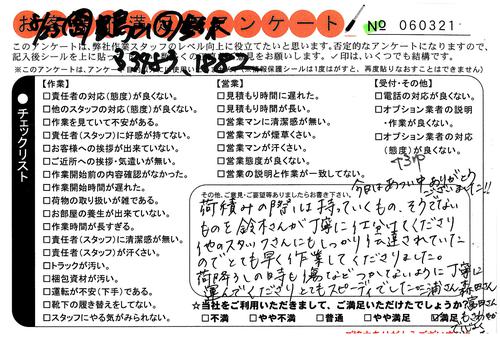 お客様満足アンケート!
№ 060321
このアンケートは、弊社作業スタッフのレベル向上に役立てたいと思います。否定的なアンケートになりますので、
記入後シールを上に貼って
見をお願いします。✓印は、いくつでも結構です。
チェックリスト
【作業】
□責任者の対応(態度)が良くない。
□他のスタッフの対応(態度)が良くない。
□作業を見ていて不安がある。
□責任者(スタッフ)に好感が持てない。
□お客様への挨拶が出来ていない。
□ご近所への挨拶・気遣いが無い。
□作業開始前の内容確認がなかった。
□作業開始時間が遅れた。
□荷物の取り扱いが雑である。
□お部屋の養生が出来ていない。
□作業時間が長すぎる。
□責任者(スタッフ)に清潔感が無い。
□責任者(スタッフ)が汗くさい。
□トラックが汚い。
□梱包資材が汚い。
□運転が不安(下手)である。
□靴下の履き替えをしてない。
□スタッフにやる気がみられない。
【営業】
□見積もり時間に遅れた。
□見積もり時間が長い。
□営業マンに清潔感が無い。
□営業マンが煙草くさい。
□営業マンが汗くさい。
□営業態度が良くない。
□営業の説明と作業が一致してない。
【受付・その他】
□電話の対応が良くない。
□オプション業者の説明
・作業が良くない。
□オプション業者の対応
(態度)が良くない。
その他、ご意見・ご要望等ありましたらお書き下さい。
今日はあつい中ありがとう
ございました!!
荷積みの際には持っていくもの、そうでない
ものを鈴木さんが丁寧に仕分けてくださり
他のスタッフさんにもしっかり伝達されていた
のでとても早く作業してくださりました。
荷降ろしの時も傷などつかないように丁寧に
運んでくださりとてもスピーディでした
☆当社をご利用いただきまして、ご満足いただけたでしょうか?
□不満 □やや不満 □普通 □やや満足 ☑満足